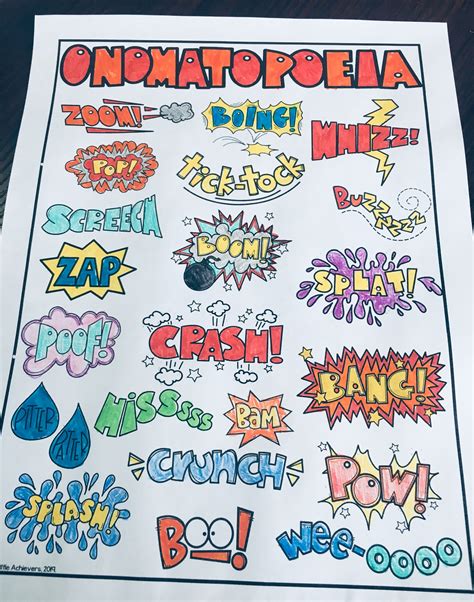 ONOMATOPOEIA
ZOOM!
BOING!
WHIZZ!
POP!
tick-tock
BUZZZZZZ
SCREECH
BOOM!
ZAP
SPLAT!
POOF!
CRASH!
BANG!
PITTER
PATTER
HISSSSSS
BAM
CRUNCH
POW!
SPLASH!
BOO!
wee-oooo
Achievers, 2019